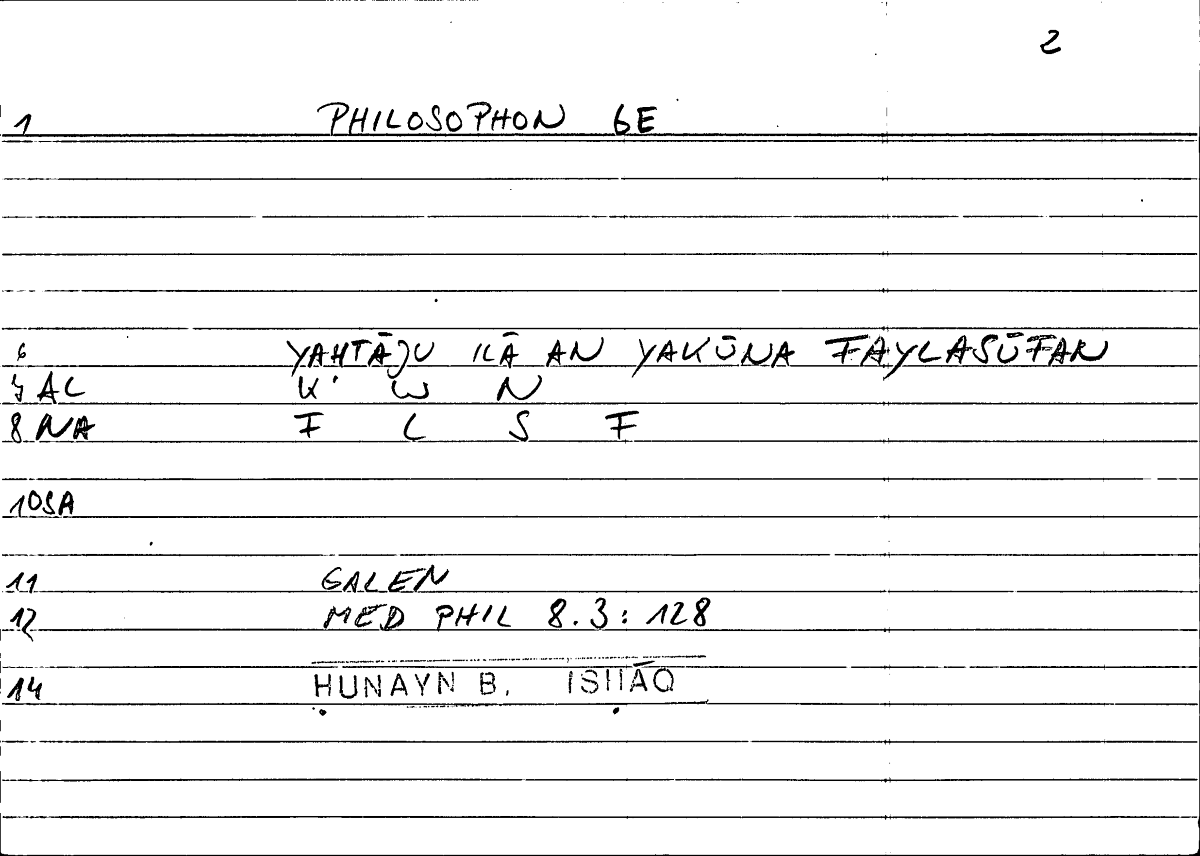 2
1 PHILOSOPHON GE
6 YAHTĀJU ILĀ AN YAKŪNA FAYLASŪFAN
7 AL K W N
8 NA F L S F
10SA
11 GALEN
12 MED PHIL 8.3: 128
14 ḤUNAYN B. ISḤĀQ